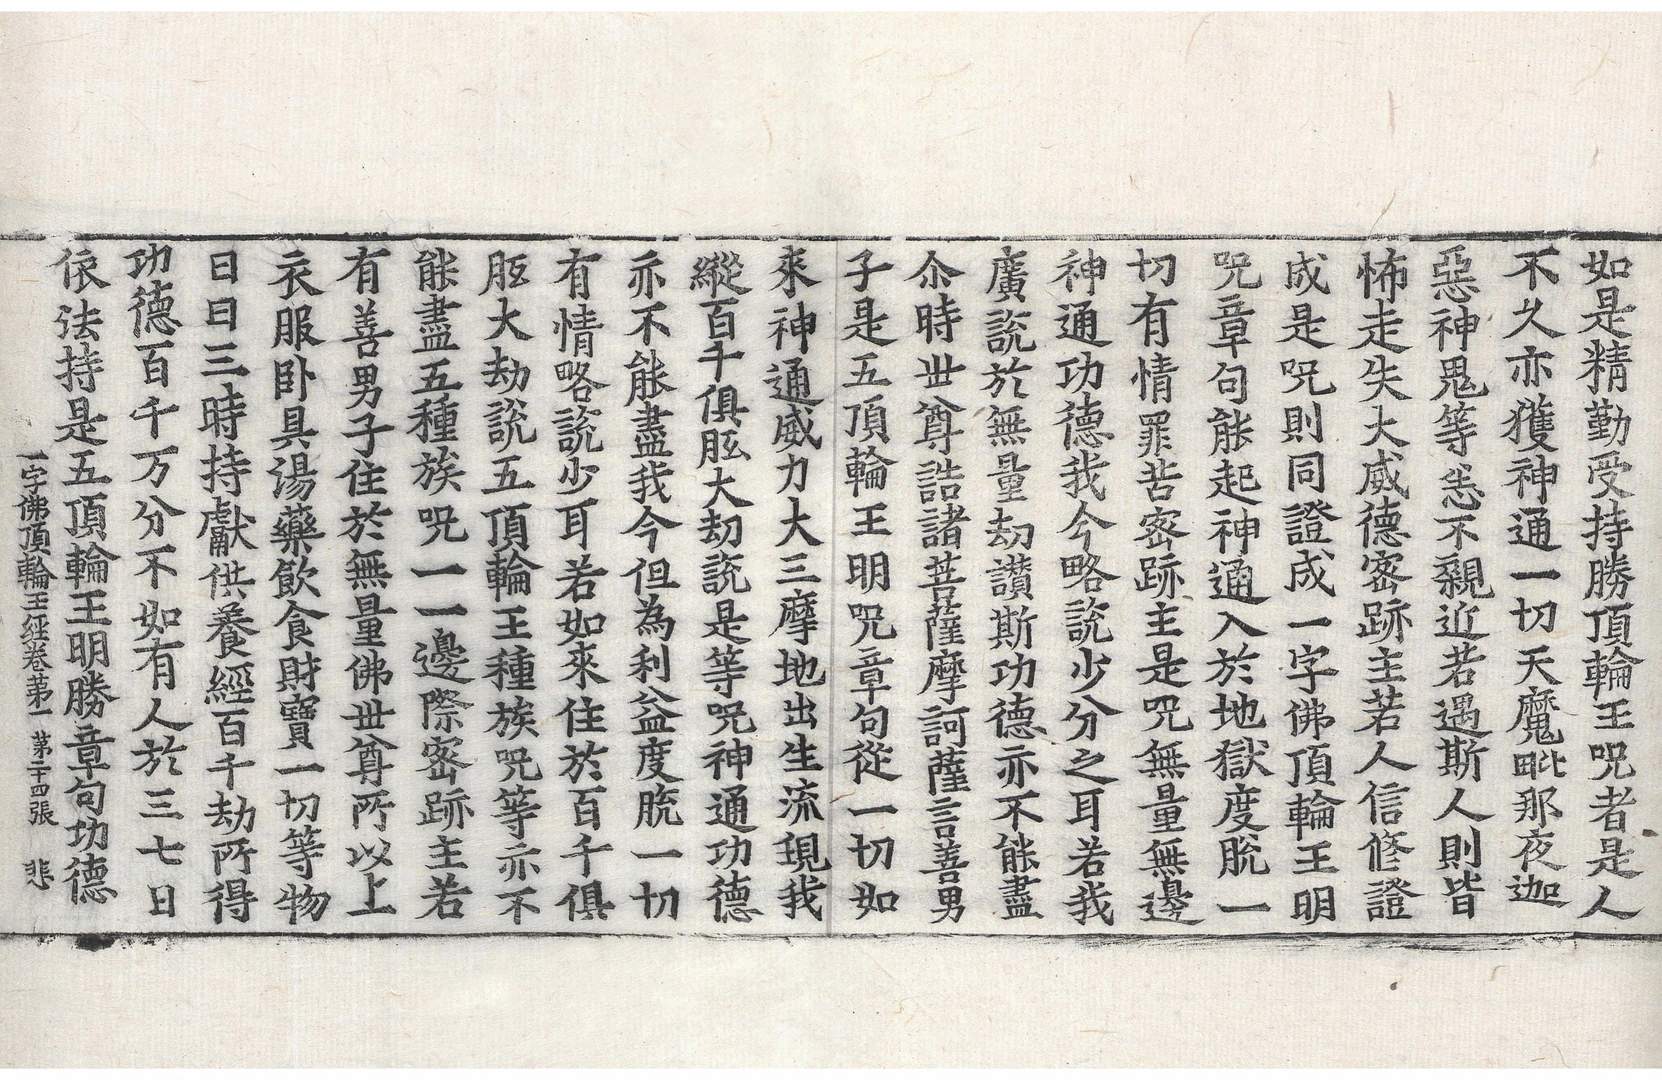 如是精勤受持勝頂輪王呪者是人
不久亦獲神通一切天魔毗那夜迦
惡神鬼等恙不親近若遇斯人則皆
怖走失大威德密跡主若人信修證
成是呪則同證成一字佛頂輪王明
呪章句能起神通入於地獄度脫一
切有情罪苦密跡主是呪無量無邊
神通功德我今略說少分之耳若我
廣說於無量劫讚斯功德亦不能盡
尒時世尊誥諸菩薩摩訶薩言善男
子是五頂輪王明呪章句從一切如
來神通威力大三摩地出生流現我
縱百千俱胝大劫說是等呪神通功德
亦不能盡我今但為利益度脫一切
有情略說少耳若如來住於百千俱
胝大劫說五頂輪王種族呪等亦不
能盡五種族呪一一邊際密跡主若
有善男子住於無量佛世尊所以上
衣服卧具湯藥飲食財寶一切等物
日日三時持獻供養經百千劫所得
功德百千万分不如有人於三七日
依法持是五頂輪王明勝章句功德
一字佛頂輪王經卷第一 第二十四張 悲